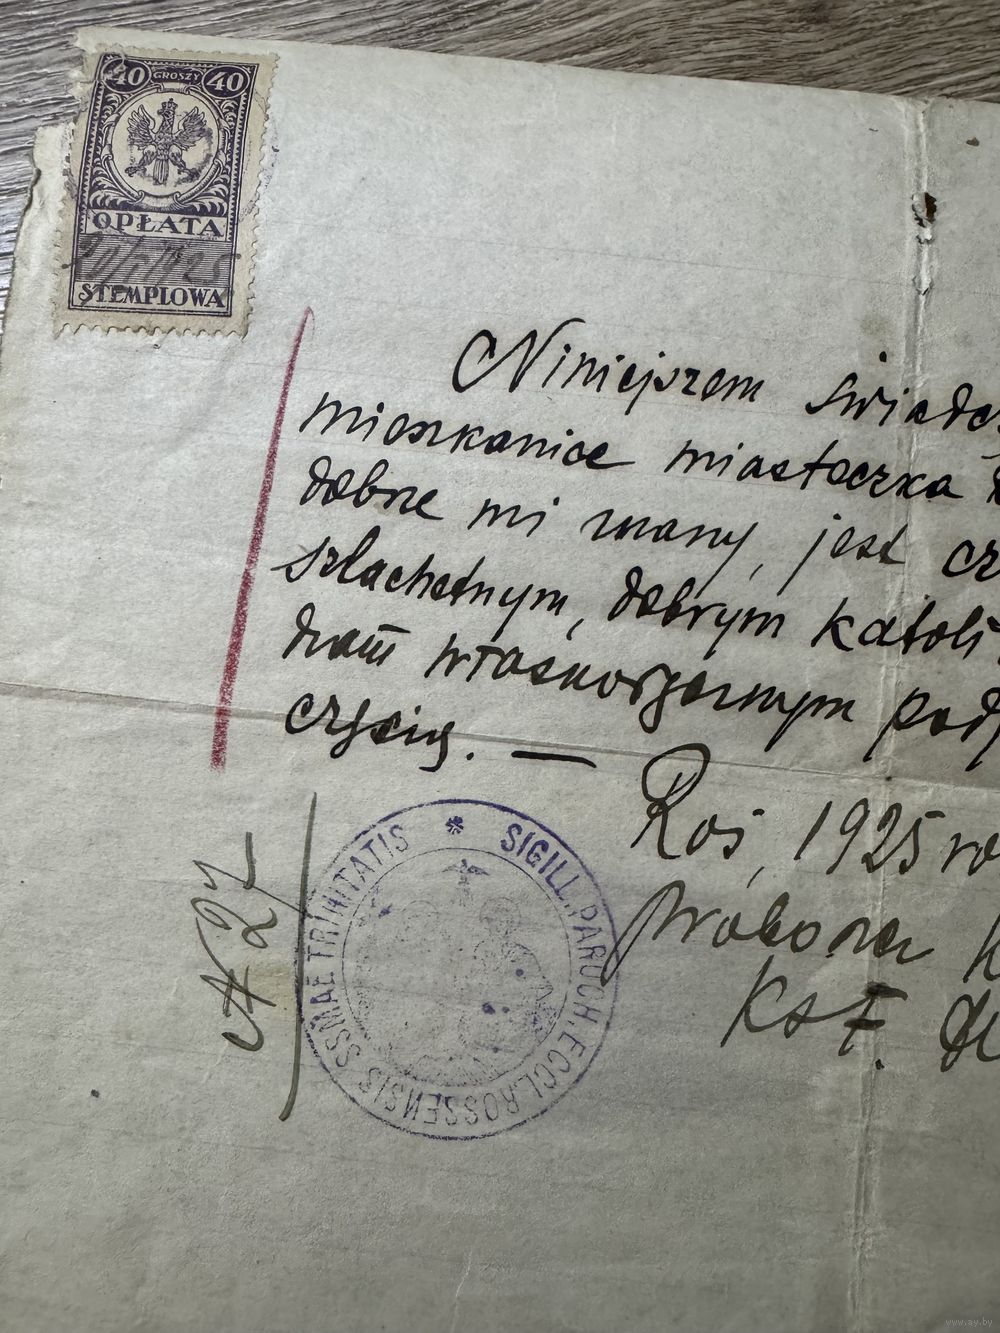 40 GROSZY 40
OPŁATA
STEMPLOWA
Niniejszem świadcz
mieszkaniec miasteczka
dobrze mi znany, jest cz
szlachetnym, dobrym katoli
dzam własnoręcznym podp
częcią. —
Roś, 1925 ro
Proboszcz
Ks. F.
SIGILL. PAROCH. ECCL. ROSSENSIS SSMAE TRINITATIS
www.ay.by